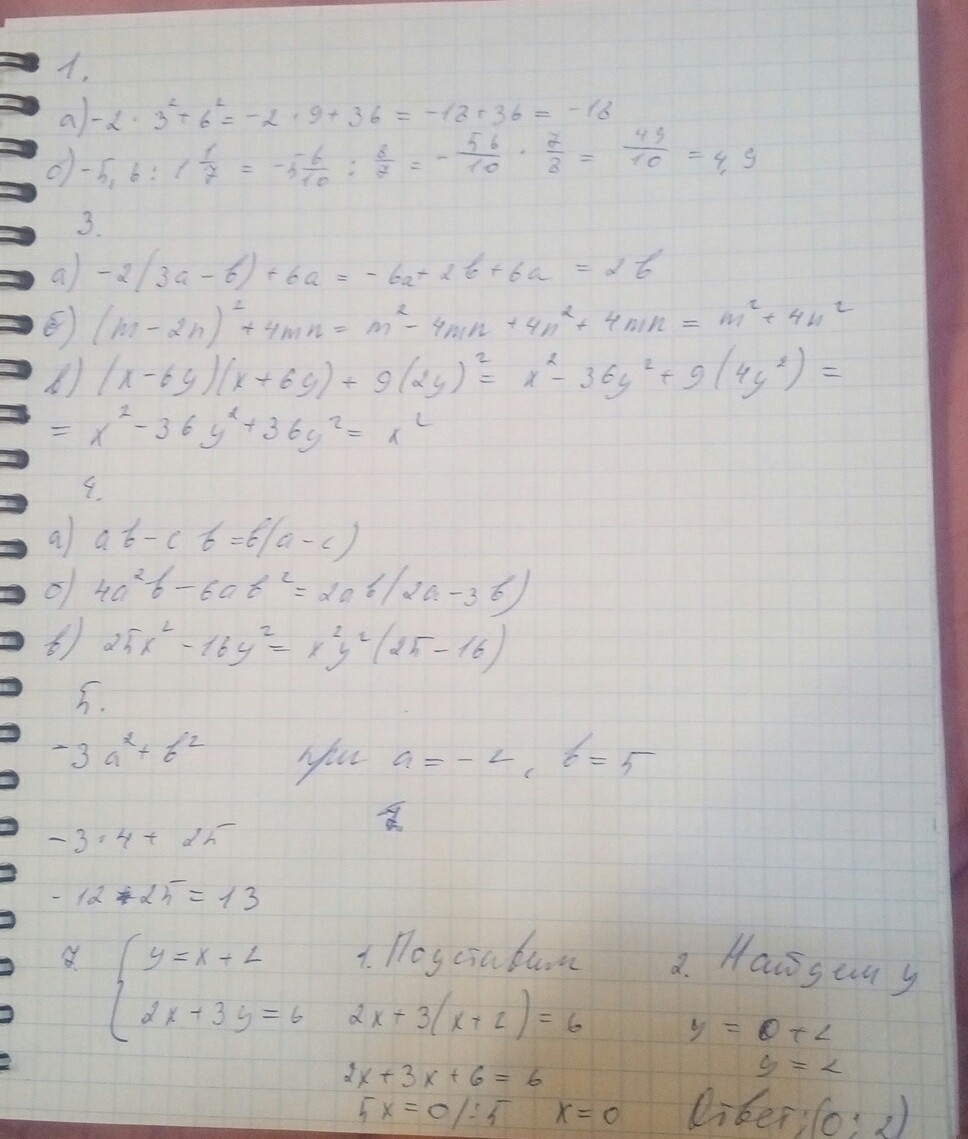 1.
а) -2 · 3² + 6² = -2 · 9 + 36 = -18 + 36 = -18
б) -5,6 : 1 1/7 = -5 6/10 : 8/7 = - 56/10 · 7/8 = 49/10 = 4,9
3.
а) -2(3a - b) + 6a = -6a + 2b + 6a = 2b
б) (m - 2n)² + 4mn = m² - 4mn + 4n² + 4mn = m² + 4n²
в) (x - 6y)(x + 6y) + 9(2y)² = x² - 36y² + 9(4y²) =
= x² - 36y² + 36y² = x²
4.
а) ab - cb = b(a - c)
б) 4a²b - 6ab² = 2ab(2a - 3b)
в) 25x² - 16y² = x²y²(25 - 16)
5.
-3a² + b² при a = -2, b = 5
-3 · 4 + 25
-12 + 25 = 13
7. { y = x + 2 1. Подставим 2. Найдем y
2x + 3y = 6 2x + 3(x + 2) = 6 y = 0 + 2
2x + 3x + 6 = 6 y = 2
5x = 0 /:5 x = 0 Ответ: (0; 2)